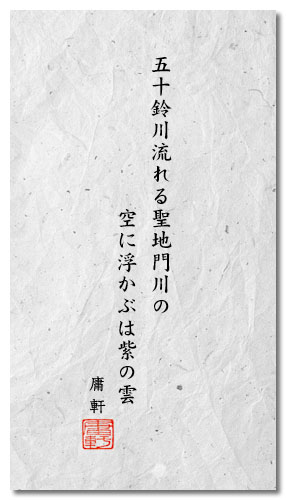 五十鈴川流れる聖地門川の
空に浮かぶは紫の雲
庸軒